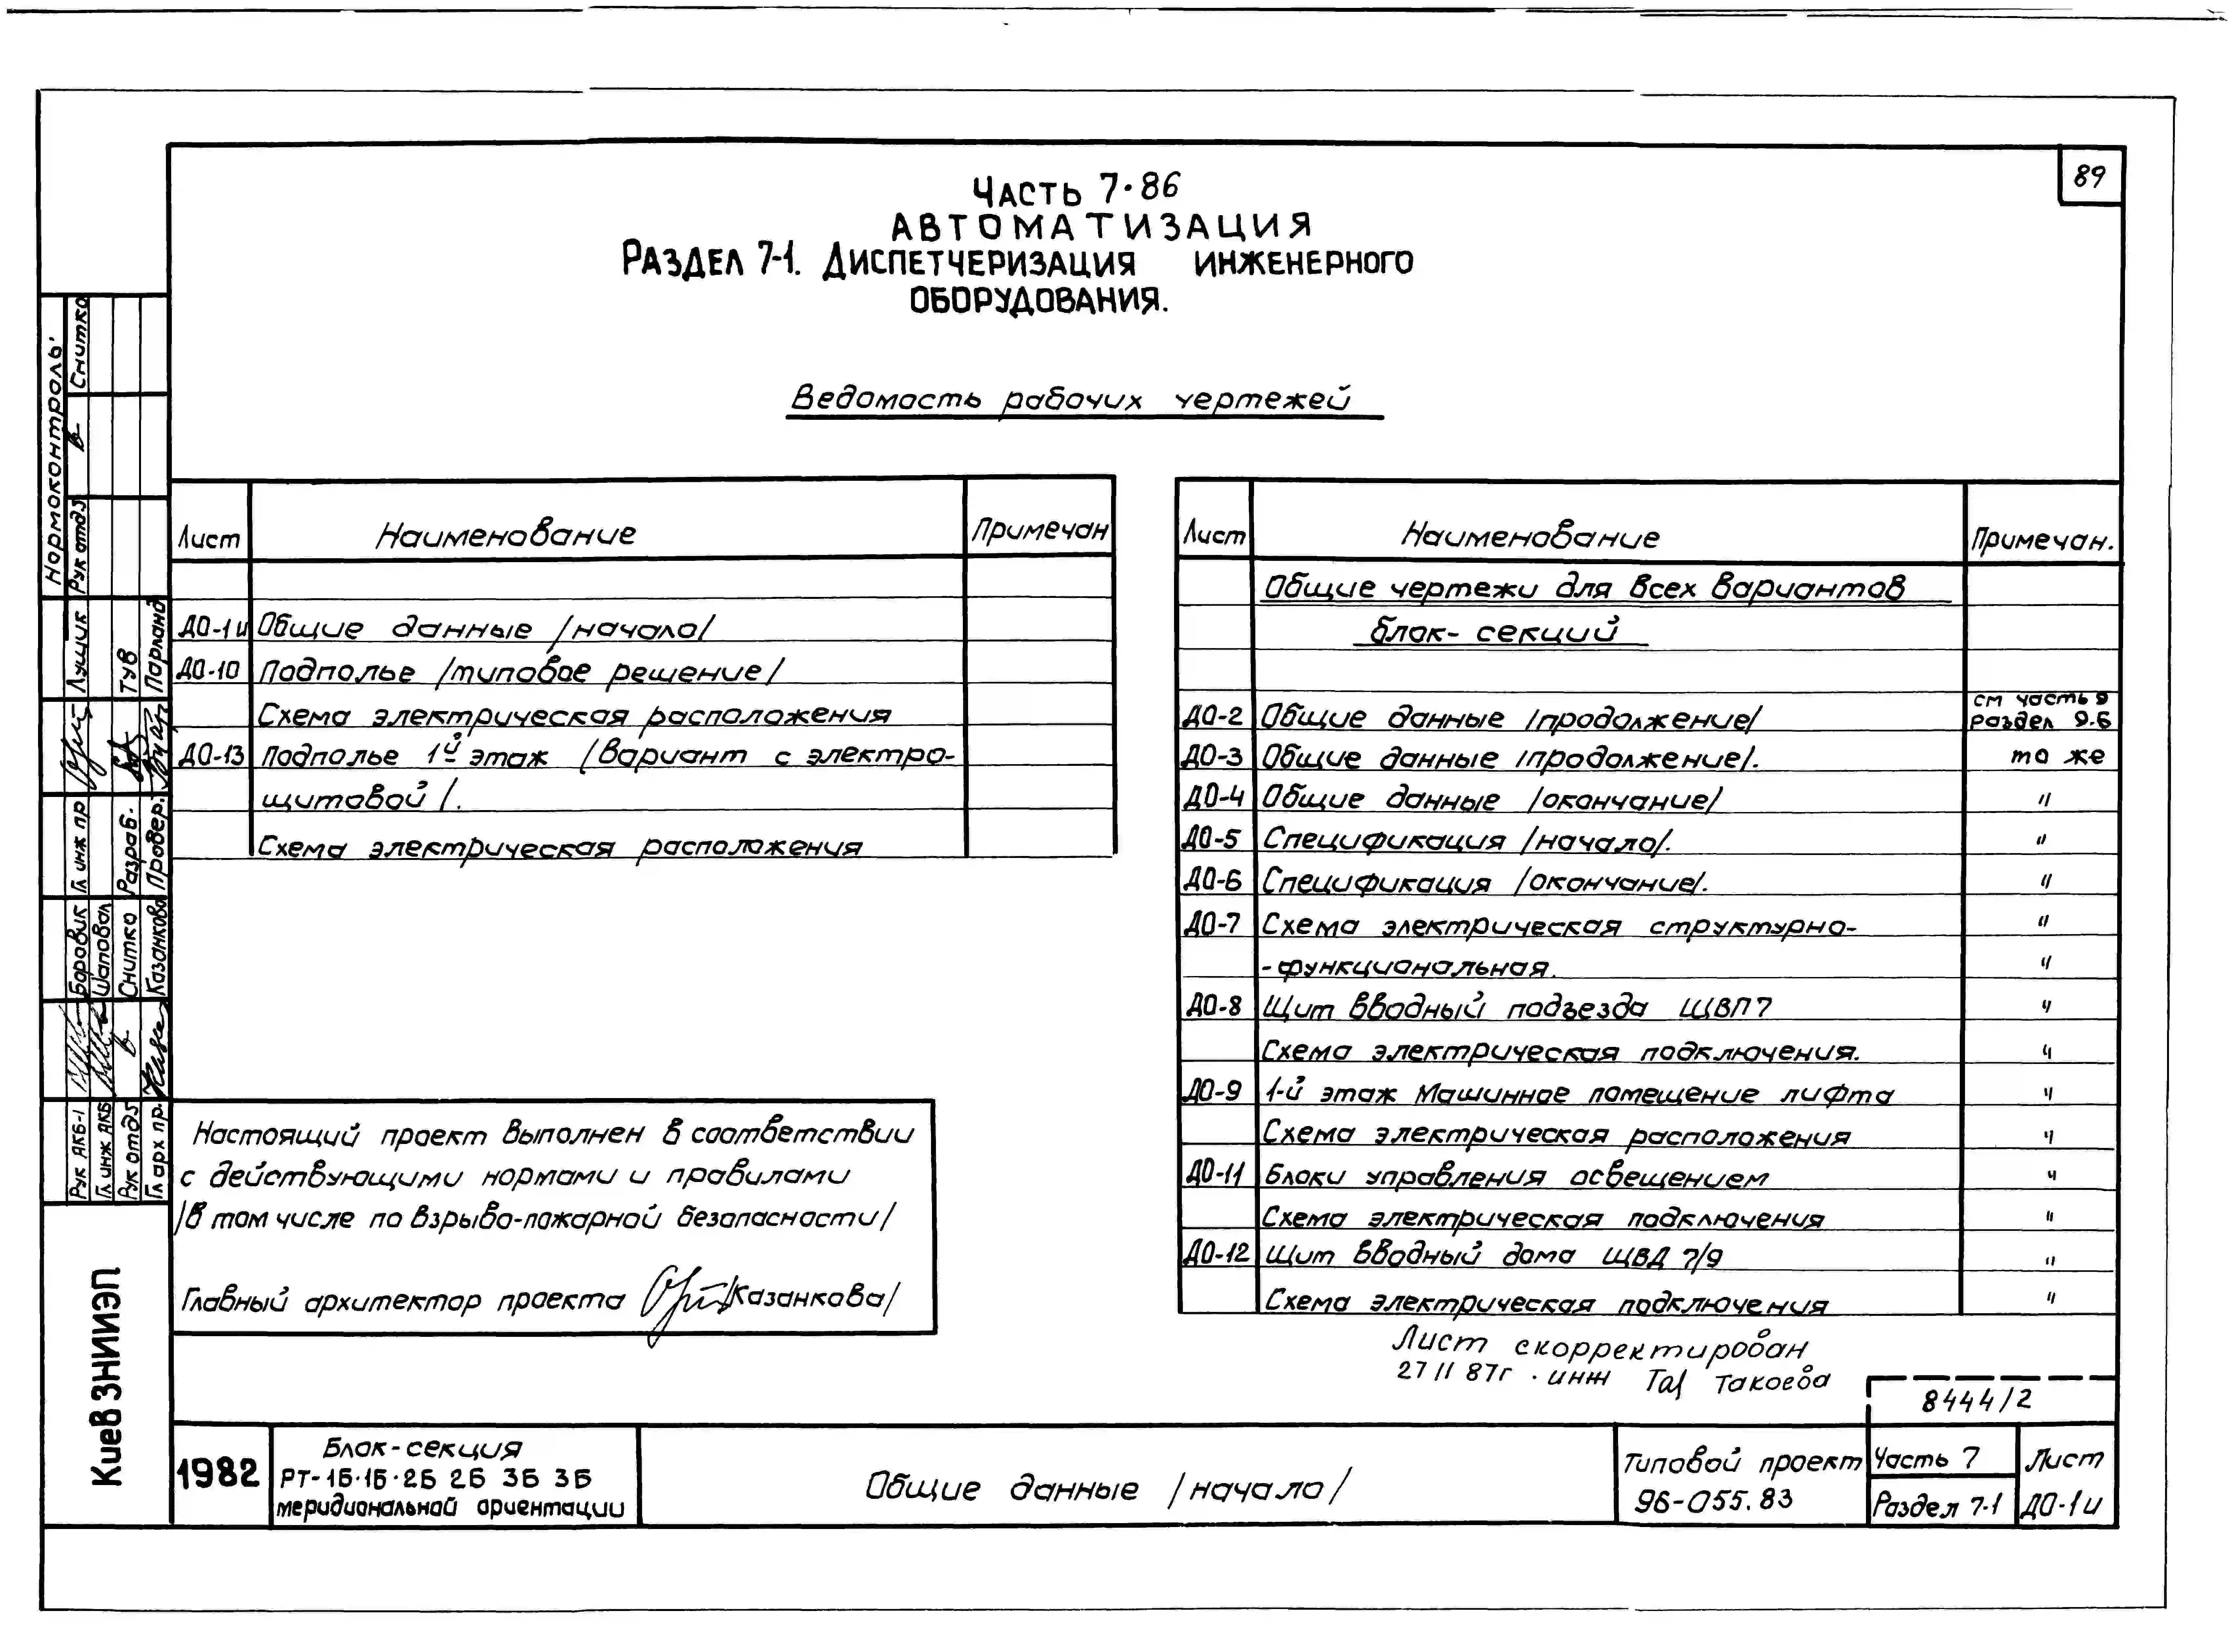 89
Часть 7·86
АВТОМАТИЗАЦИЯ
Раздел 7-1. Диспетчеризация инженерного
оборудования.
Ведомость рабочих чертежей
Лист Наименование Примечан
ДО-1и Общие данные /начало/
ДО-10 Подполье /типовое решение/
Схема электрическая расположения
ДО-13 Подполье 1й этаж /вариант с электро-
щитовой/.
Схема электрическая расположения
Лист Наименование Примечан.
Общие чертежи для всех вариантов
блок-секций
ДО-2 Общие данные /продолжение/ см часть 9 раздел 9.6
ДО-3 Общие данные /продолжение/. то же
ДО-4 Общие данные /окончание/ "
ДО-5 Спецификация /начало/. "
ДО-6 Спецификация /окончание/. "
ДО-7 Схема электрическая структурно- "
-функциональная. "
ДО-8 Щит вводный подъезда ЩВП7 "
Схема электрическая подключения. "
ДО-9 1-й этаж Машинное помещение лифта "
Схема электрическая расположения "
ДО-11 Блоки управления освещением "
Схема электрическая подключения "
ДО-12 Щит вводный дома ЩВД 7/9 "
Схема электрическая подключения "
Настоящий проект выполнен в соответствии
с действующими нормами и правилами
/в том числе по взрыво-пожарной безопасности/
Главный архитектор проекта /Казанкова/
Лист скорректирован
27 11 87г. инж Такоева
8444/2
1982
Блок-секция
РТ-1Б·1Б·2Б 2Б 3Б 3Б
меридиональной ориентации
Общие данные /начало/
Типовой проект
96-055.83
Часть 7
Раздел 7-1
Лист
ДО-1и
КиевЗНИИЭП
Нормоконтроль
Рук отд5 Снитко
Гл инж пр Лущик
Разраб. Тув
Провер. Парланд
Рук АКБ-1 Боровик
Гл инж АКБ Шаповал
Рук отд5 Снитко
Гл арх пр. Казанкова